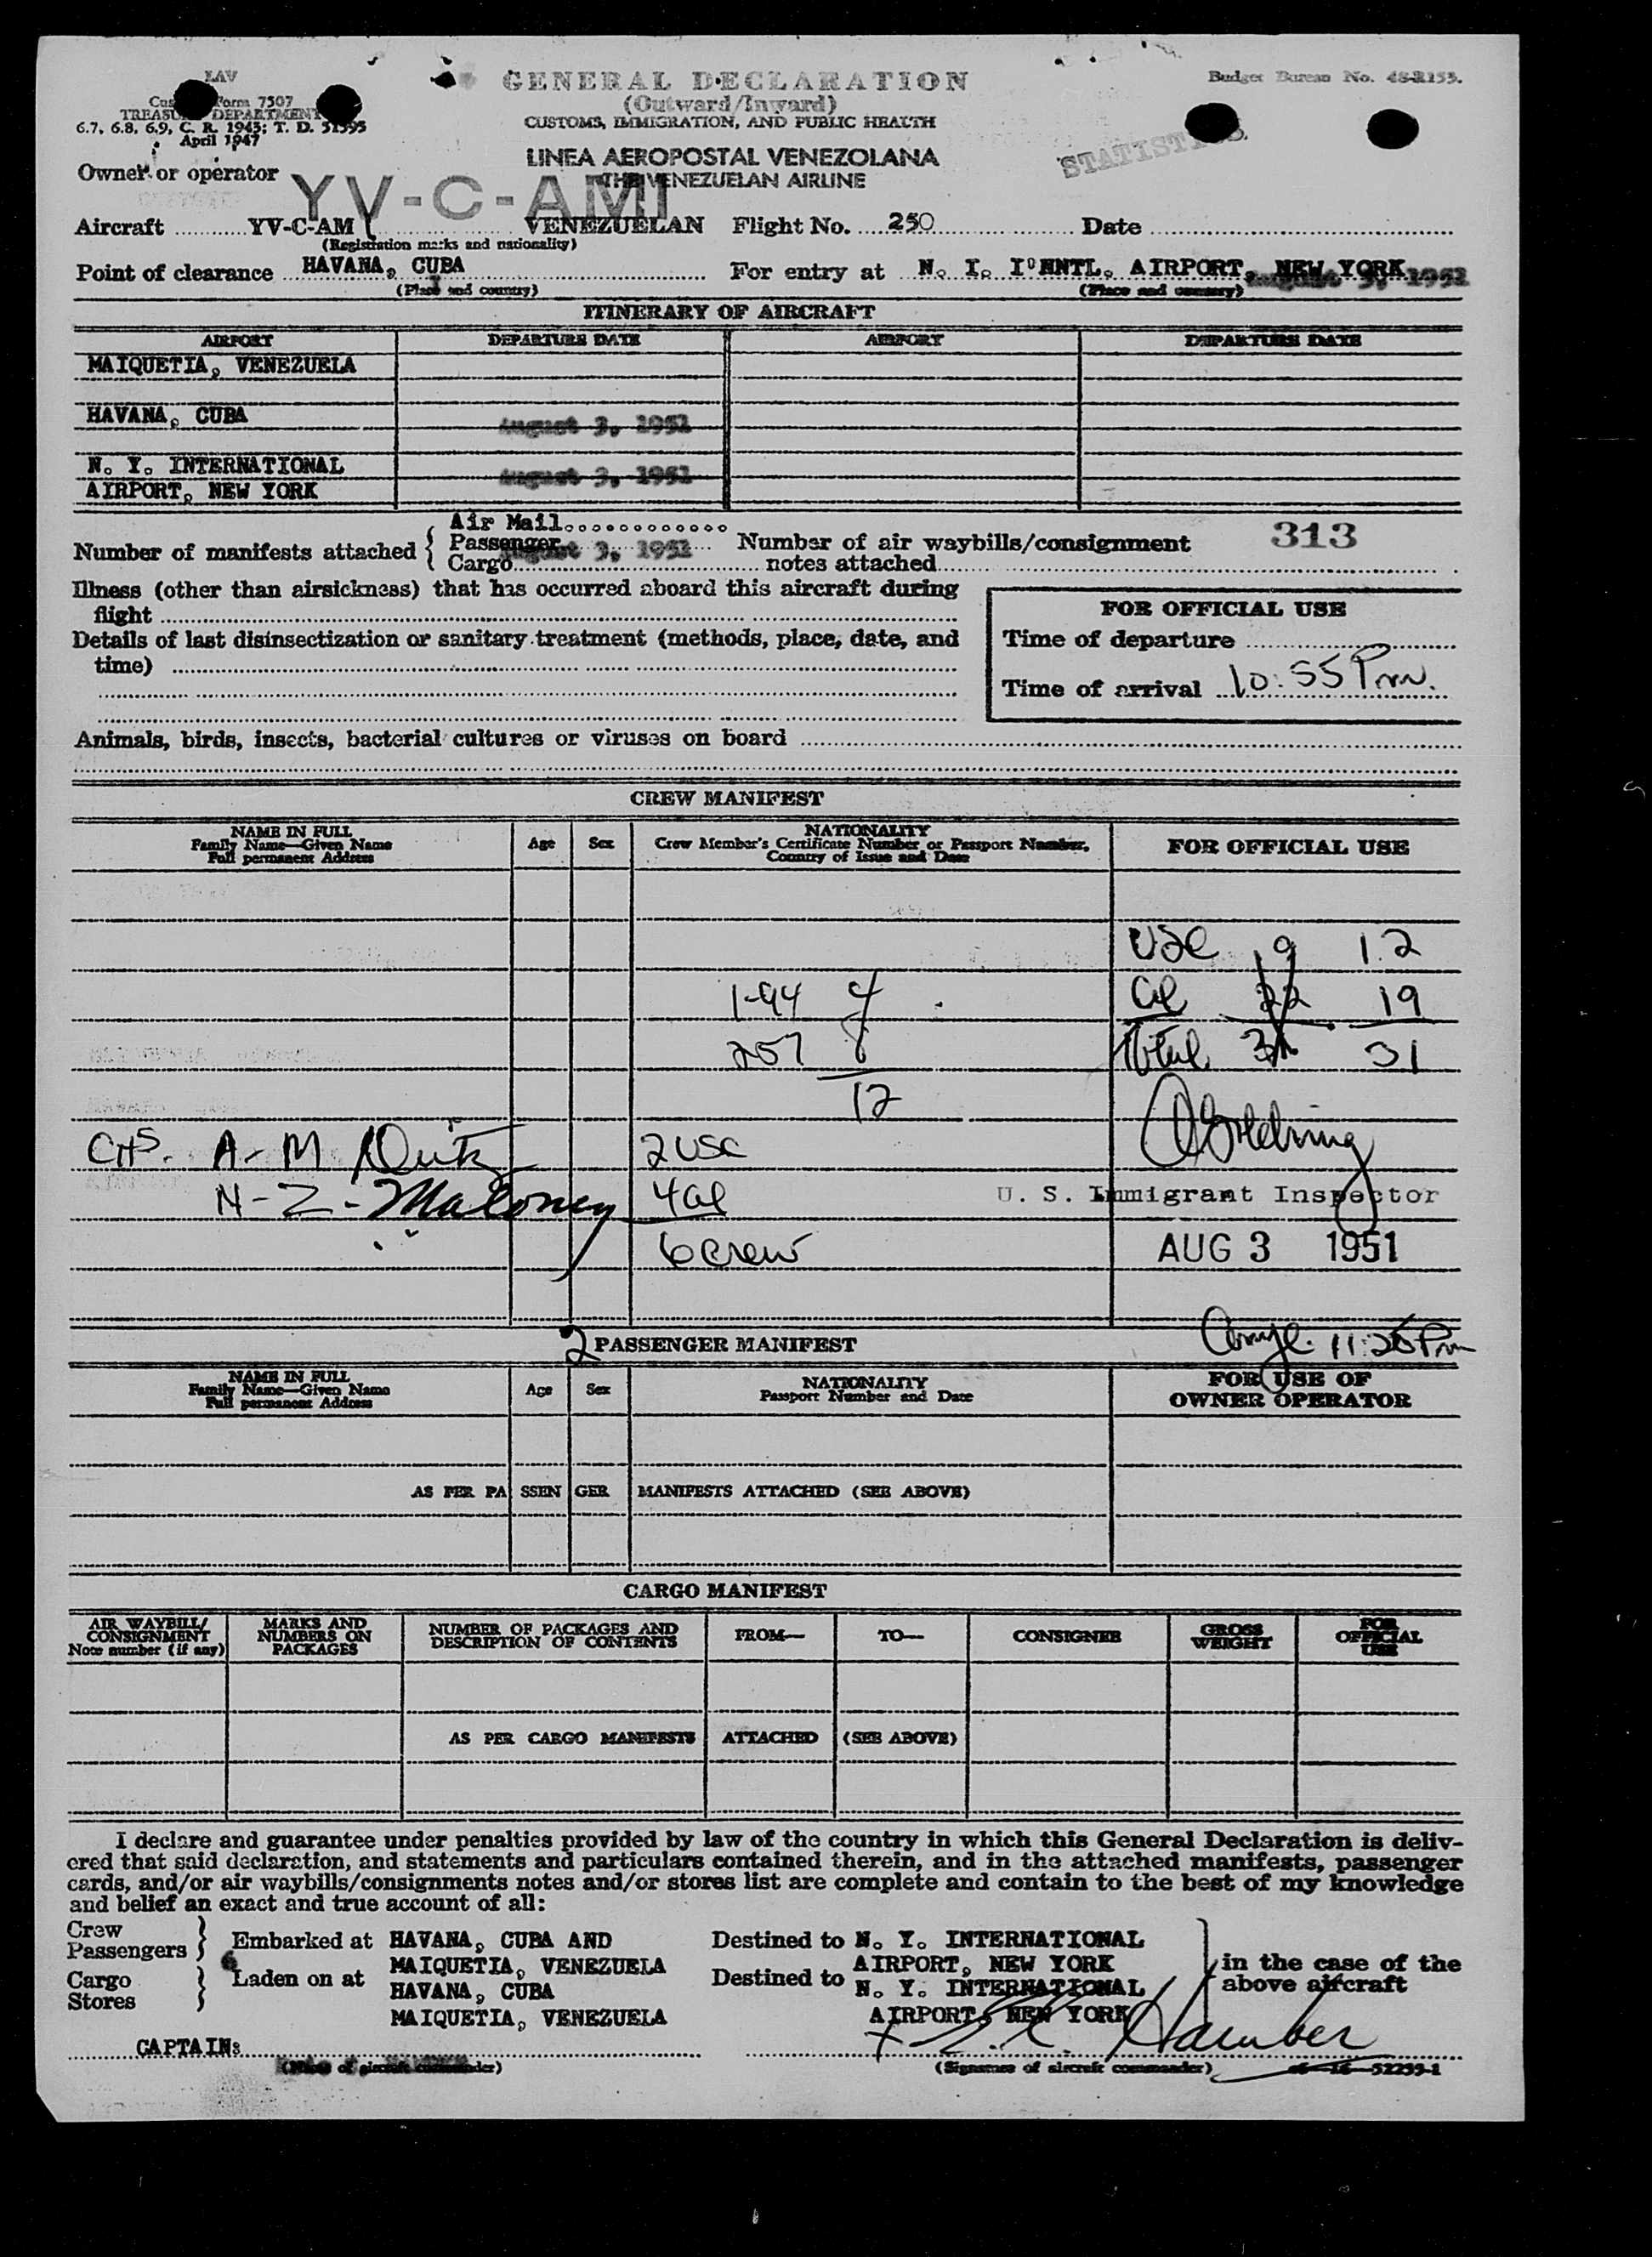 LAV
GENERAL DECLARATION
Budget Bureau No. 48-R155.
Form 7507
(Outward/Inward)
TREASURY DEPARTMENT
CUSTOMS, IMMIGRATION, AND PUBLIC HEALTH
6.7, 6.8, 6.9, C. R. 1943; T. D. 51595
April 1947
LINEA AEROPOSTAL VENEZOLANA
STATISTICS
Owner or operator
THE VENEZUELAN AIRLINE
YV-C-AMI
Aircraft YV-C-AM VENEZUELAN Flight No. 250 Date
(Registration marks and nationality)
Point of clearance HAVANA, CUBA For entry at N. I. I'NNTL. AIRPORT, NEW YORK
August 3, 1951
(Place and country) (Place and country)
ITINERARY OF AIRCRAFT
AIRPORT DEPARTURE DATE AIRPORT DEPARTURE DATE
MAIQUETIA, VENEZUELA
HAVANA, CUBA August 3, 1951
N. Y. INTERNATIONAL August 3, 1951
AIRPORT, NEW YORK
Number of manifests attached
Air Mail
Passenger August 3, 1951
Cargo
Number of air waybills/consignment 313
notes attached
Illness (other than airsickness) that has occurred aboard this aircraft during
flight
Details of last disinsectization or sanitary treatment (methods, place, date, and
time)
FOR OFFICIAL USE
Time of departure
Time of arrival 10:55 Pm.
Animals, birds, insects, bacterial cultures or viruses on board
CREW MANIFEST
NAME IN FULL
Family Name—Given Name
Full permanent Address
Age
Sex
NATIONALITY
Crew Member's Certificate Number or Passport Number,
Country of Issue and Date
FOR OFFICIAL USE
USC 9 12
1-94 4 al 22 19
257 8 Total 31
12
CHS. A-M 2 USC
N-Z- Maloney 4 al
U. S. Immigrant Inspector
6 crew
AUG 3 1951
11:25 Pm
2 PASSENGER MANIFEST
NAME IN FULL
Family Name—Given Name
Full permanent Address
Age
Sex
NATIONALITY
Passport Number and Date
FOR USE OF
OWNER OPERATOR
AS PER PASSENGER MANIFESTS ATTACHED (SEE ABOVE)
CARGO MANIFEST
AIR WAYBILL/
CONSIGNMENT
Note number (if any)
MARKS AND
NUMBERS ON
PACKAGES
NUMBER OF PACKAGES AND
DESCRIPTION OF CONTENTS
FROM—
TO—
CONSIGNEE
GROSS
WEIGHT
FOR
OFFICIAL
USE
AS PER CARGO MANIFESTS ATTACHED (SEE ABOVE)
I declare and guarantee under penalties provided by law of the country in which this General Declaration is deliv-
ered that said declaration, and statements and particulars contained therein, and in the attached manifests, passenger
cards, and/or air waybills/consignments notes and/or stores list are complete and contain to the best of my knowledge
and belief an exact and true account of all:
Crew
Passengers
Embarked at HAVANA, CUBA AND
MAIQUETIA, VENEZUELA
Destined to N. Y. INTERNATIONAL
AIRPORT, NEW YORK
Cargo
Stores
Laden on at HAVANA, CUBA
MAIQUETIA, VENEZUELA
Destined to N. Y. INTERNATIONAL
AIRPORT, NEW YORK
in the case of the
above aircraft
CAPTAIN:
(Name of aircraft commander)
(Signature of aircraft commander)
16—52233-1